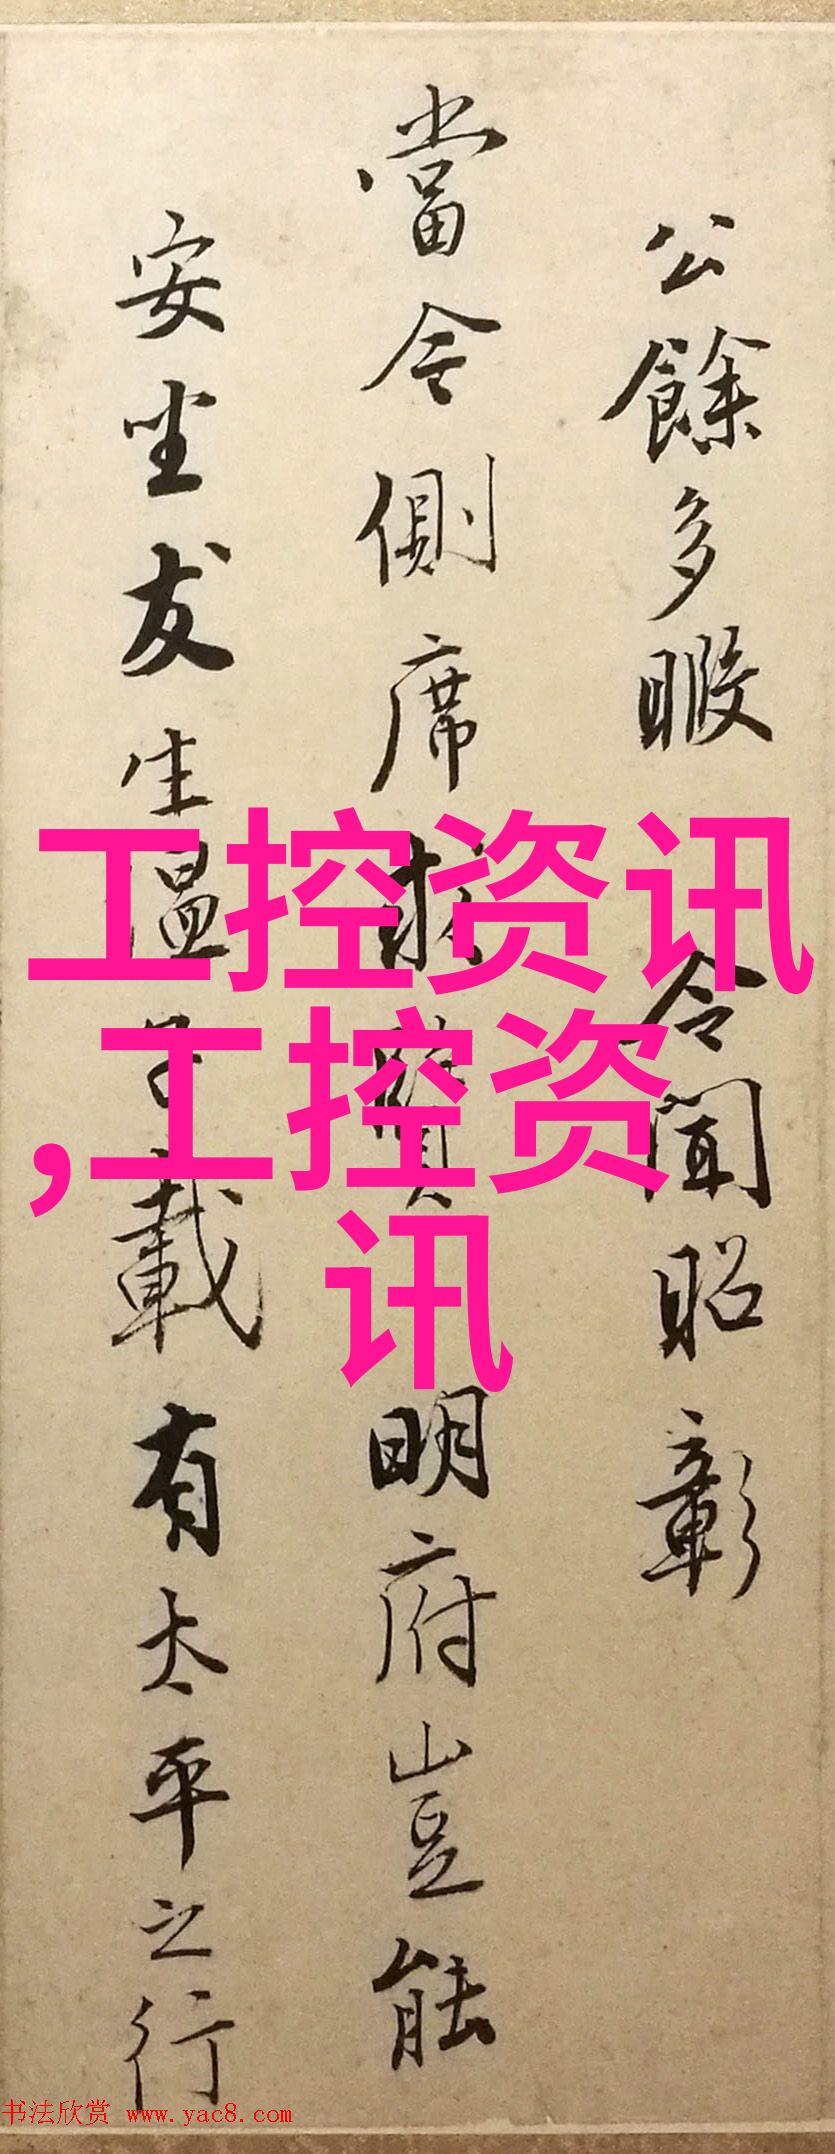 公餘多暇 令聞昭彰
當今側席求賢明府豈能
安坐友生溫子載有太平之行
工控资讯
,工控资
讯
书法欣赏 www.yac8.com